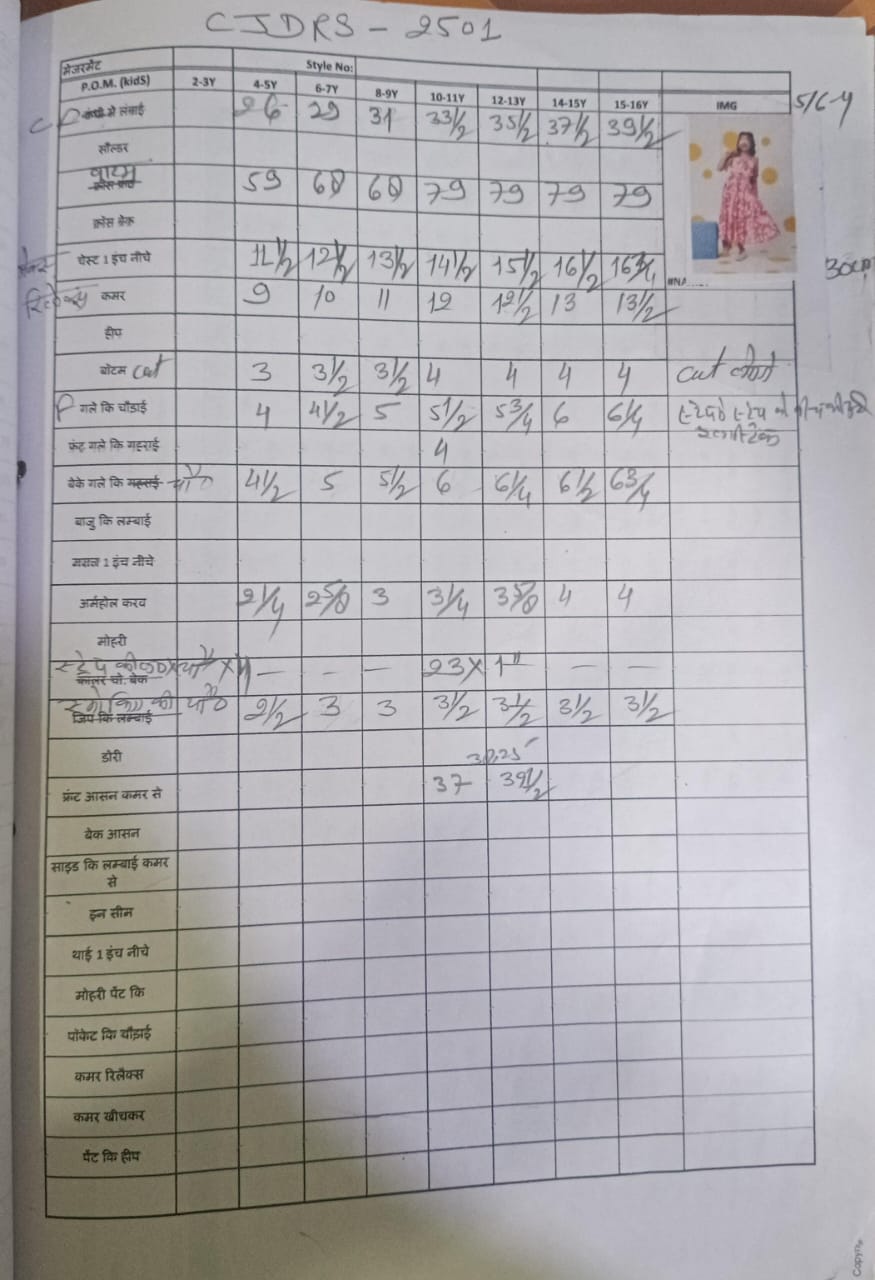 CJDRS - 2501
मेजरमेंट Style No:
P.O.M. (kidS) 2-3Y 4-5Y 6-7Y 8-9Y 10-11Y 12-13Y 14-15Y 15-16Y IMG 5/6-Y
से लंबाई 26 29 31 33 1/2 35 1/2 37 1/2 39 1/2
सोल्डर
59 79 79 79 79
क्रॉस बेक
चेस्ट 1 इंच नीचे 11 1/2 12 1/2 13 1/2 14 1/2 15 1/2 16 1/2 16 3/4
कमर 9 10 11 12 12 1/2 13 13 1/2
हीप
बोटम cut 3 3 1/2 3 1/2 4 4 4 4 cut
गले कि चौडाई 4 4 1/2 5 5 1/2 5 3/4 6 6 1/4
फ्रंट गले कि गहराई 4
बेके गले कि गहराई 4 1/2 5 5 1/2 6 6 1/4 6 1/2 6 3/4
बाजु कि लम्बाई
मसल 1 इंच नीचे
अर्महोल करव 2 1/4 2 5/8 3 3 1/4 3 5/8 4 4
मोहरी
कालर चो. बेक - - - 23 x 1" - -
जिप कि लम्बाई 2 1/2 3 3 3 1/2 3 1/2 3 1/2 3 1/2
डोरी
फ्रंट आसन कमर से 37 39 1/2
बेक आसन
साइड कि लम्बाई कमर
से
इन सीम
थाई 1 इंच नीचे
मोहरी पेंट कि
पॉकेट कि चौड़ाई
कमर रिलैक्स
कमर खीचकर
पेंट कि हीप